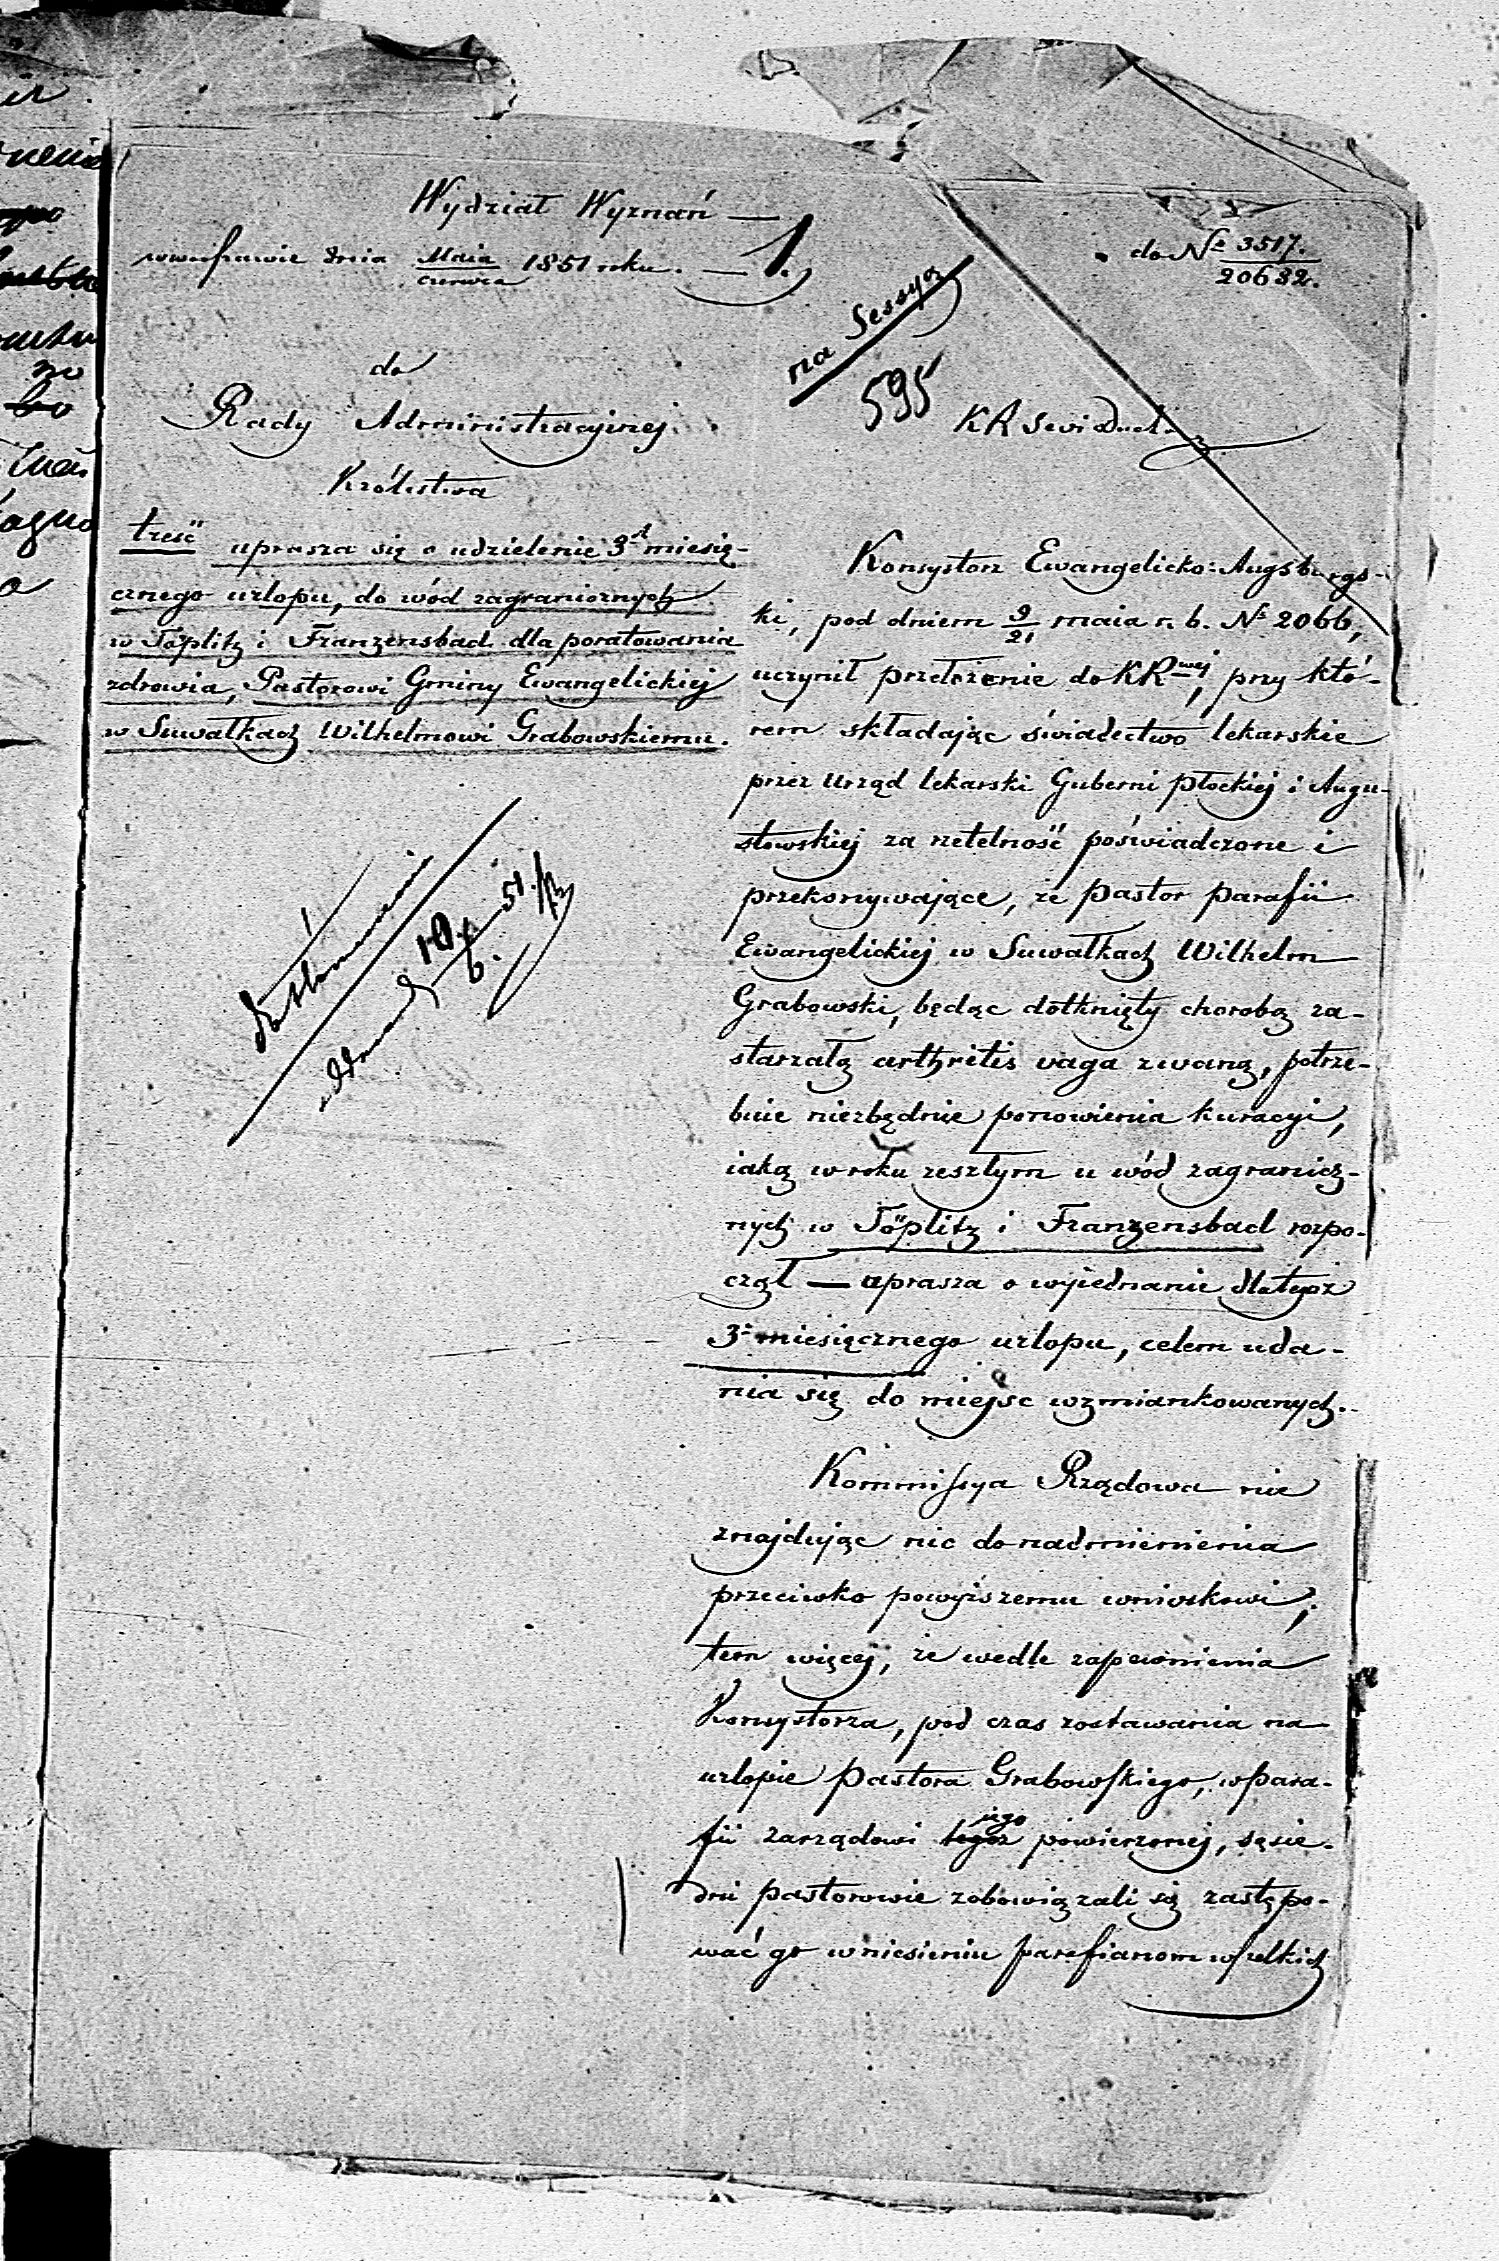 Wydział Wyznań
w Warszawie dnia Maia/czerwca 1851 roku.
1.
do № 3517./20632.
na Sessyą
595
do
Rady Administracyjnej
Królestwa
KRSWiDuch.
treść uprasza się o udzielenie 3ch miesię-
cznego urlopu, do wód zagranicznych
w Töplitz i Franzensbad dla poratowania
zdrowia, Pastorowi Gminy Ewangelickiej
w Suwałkach Wilhelmowi Grabowskiemu.
10/6. 51.
Konsystorz Ewangelicko-Augsburgs-
ki, pod dniem 9/21 maia r. b. № 2066,
uczynił przełożenie do KRwej, przy któ-
rem składając świadectwo lekarskie
przez Urząd lekarski Guberni Płockiej i Augu-
stowskiej za rzetelność poświadczone i
przekonywające, że Pastor Parafii
Ewangelickiej w Suwałkach Wilhelm
Grabowski, będąc dotknięty chorobą za-
starzałą arthritis vaga zwaną, potrze-
buie niezbędnie ponowienia kuracyi,
iaką w roku zeszłym u wód zagranicz-
nych w Töplitz i Franzensbad rozpo-
czął — uprasza o wyiednanie dla tegoż
3. miesięcznego urlopu, celem uda-
nia się do miejsc wzmiankowanych.
Kommissya Rządowa nie
znajdując nic do nadmienienia
przeciwko powyższemu wnioskowi,
tem więcej, że wedle zapewnienia
Konsystorza, pod czas zostawania na
urlopie Pastora Grabowskiego, w Para-
jego
fii zarządowi tegoż powierzonej, sąsie-
dni pastorowie zobowiązali się zastępo-
wać go w niesieniu parafianom wszelkich